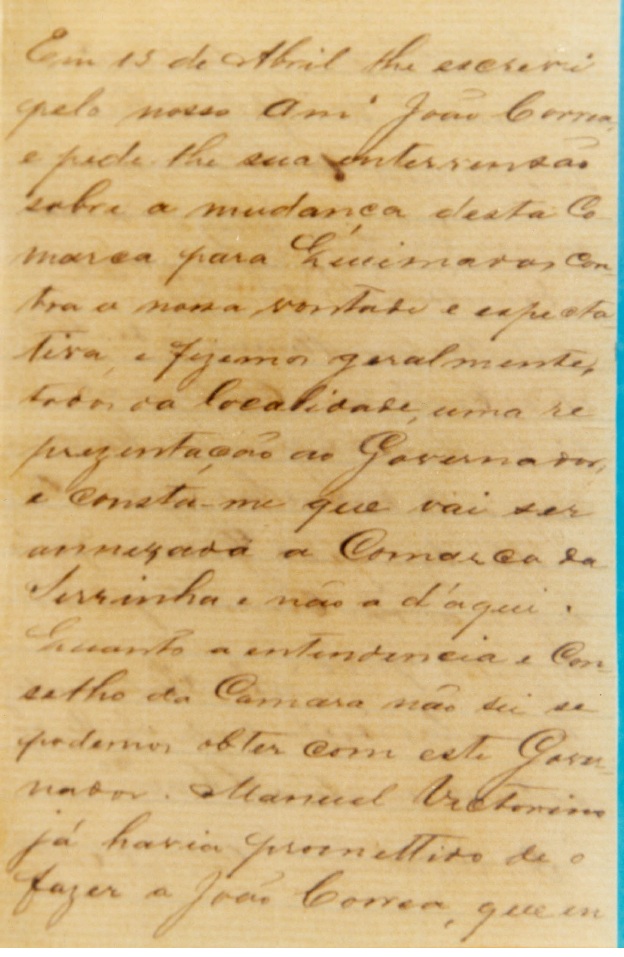 Em 15 de Abril lhe escrevi
pelo nosso Amº João Correa,
e pede lhe sua entervensão
sobre a mudança desta Co
marca para Queimadas con
tra a nossa vontade e especta
tiva, e fizemos geralmente,
todos da localidade, uma re
prezentação ao Governador,
e consta-me que vai ser
annexada a Comarca da
Serrinha e não a d'aqui.
Quanto a entendencia e Con
selho da Camara não sei se
podemos obter com este Gover
nador. Manuel Victorino
já havia promettido de o
fazer a João Correa, que en